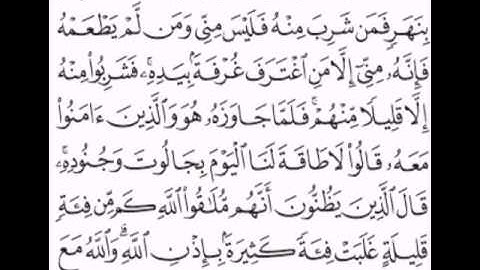 بِنَهَرٍ فَمَن شَرِبَ مِنْهُ فَلَيْسَ مِنِّى وَمَن لَّمْ يَطْعَمْهُ
فَإِنَّهُۥ مِنِّىٓ إِلَّا مَنِ ٱغْتَرَفَ غُرْفَةَۢ بِيَدِهِۦۚ فَشَرِبُوا۟ مِنْهُ
إِلَّا قَلِيلًا مِّنْهُمْۚ فَلَمَّا جَاوَزَهُۥ هُوَ وَٱلَّذِينَ ءَامَنُوا۟
مَعَهُۥ قَالُوا۟ لَا طَاقَةَ لَنَا ٱلْيَوْمَ بِجَالُوتَ وَجُنُودِهِۦۚ
قَالَ ٱلَّذِينَ يَظُنُّونَ أَنَّهُم مُّلَٰقُوا۟ ٱللَّهِ كَم مِّن فِئَةٍ
قَلِيلَةٍ غَلَبَتْ فِئَةً كَثِيرَةَۢ بِإِذْنِ ٱللَّهِۗ وَٱللَّهُ مَعَ